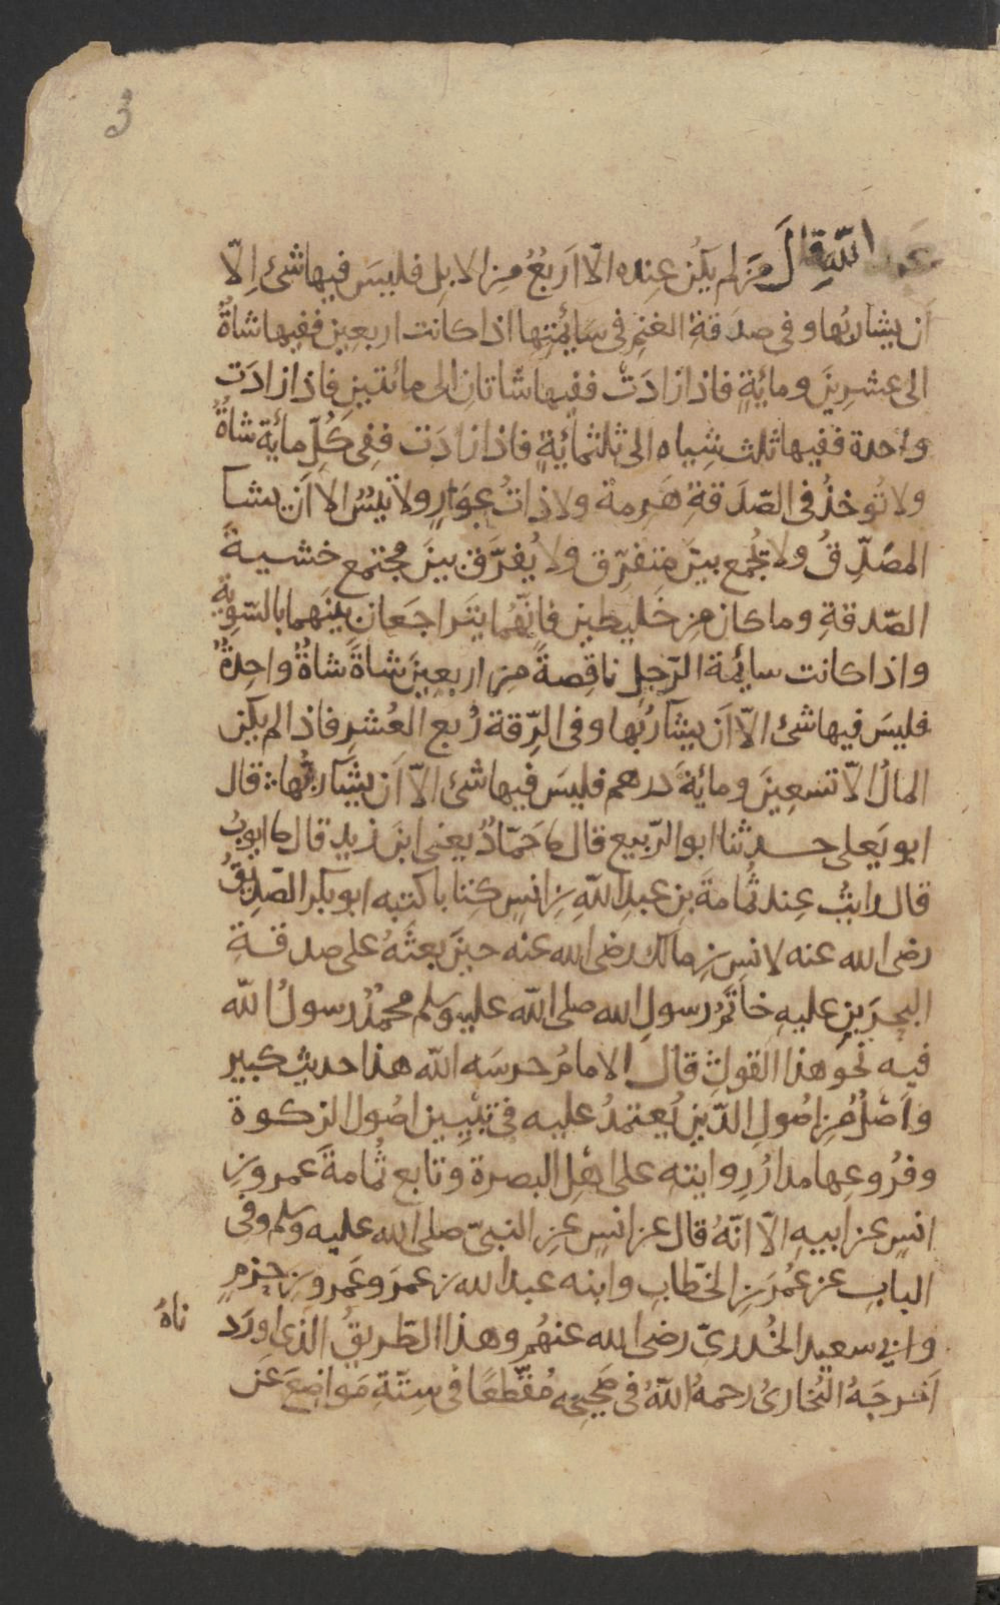 3
عبد اللّٰهِ قالَ مَن لم يَكُن عِنده الّا اَربُعُ مِن الابلِ فليسَ فيها شئ اِلّا
اَن يشا ربُها و فى صدَقةِ الغنمِ فى سَائِمتِها اذا كانت اربعين ففيها شاةٌ
الى عشرِينَ ومائةٍ فاذا زادَت ففيها شاتانِ الى مائتين فاذا زادَت
واحدة ففيها ثلث شِياه الى ثلثمائةٍ فاذا زادَت ففى كُلّ مائة شاةٌ
ولا تُوخذُ فى الصّدَقةِ هَرِمة ولا ذاتُ عَوَارٍ ولا تيسٌ الا اَن يشا
المصّدِّقُ ولا تُجمع بينَ متفرّق ولا يُفرَّق بينَ مجتمع خشيةَ
الصّدقةِ وما كان مِن خَليطين فانّهُما يتَراجَعان بينَهما بالسَّوِيّةِ
واذا كانت سائمة الرّجلِ ناقِصةً مِن اربعِينَ شاةً شاةٌ واحِدةٌ
فليسَ فيها شئ الّا اَن يشآ ربُها وفى الرِّقة رُبع العُشرِ فاذا لم يكن
المالُ الّا تسعِينَ ومائةَ درهم فليسَ فيها شئ الّا اَن يشآ ربُّها ؞ قال
ابو يَعلى حدثنا ابو الرّبيع قال ثا حَمّادٌ يعنى ابنَ زيد قال ثا ايوبُ
قال رايتُ عِند ثُمامةَ بن عبدِ اللّٰهِ بن انسٍ كِتابا كتبه ابو بكر الصّدِيقُ
رضى الله عنه لانسِ بن مالك رضى الله عنه حينَ بعثَهُ على صدقةِ
البحرَينِ عليهِ خاتَمُ رسولِ الله صلى اللّٰه عليه وسلم محمّدٌ رسولُ اللّٰه
فيه نَحو هذا القولِ قال الامامُ حرسَه اللّٰه هذا حديث كبير
واَصلٌ مِن اصُولِ الدّينِ يُعتمدُ عليه فى تبيِين اصُول الزكوة
وفرُوعِها مدارُ رِوايتِه على اهلِ البصرة وتابع ثُمامةَ عمرو بن
انسٍ عن ابيهِ الّا انّهُ قال عن انسٍ عنِ النبىّ صلى الله عليه وسلم وفى
البابِ عن عُمرَ بنِ الخطّابِ وابنه عبد الله بن عمرَ وعَمرو بن حزمٍ
وابى سعيد الخُدرىّ رضى الله عنهُم وهذا الطّريقُ الّذى اورَد
ناهُ
اَخرجَهُ البُخارىُ رحمهُ اللّٰهُ فى صحيحِه مُقَطّعًا فى سِتّةِ مَواضِعَ عَن